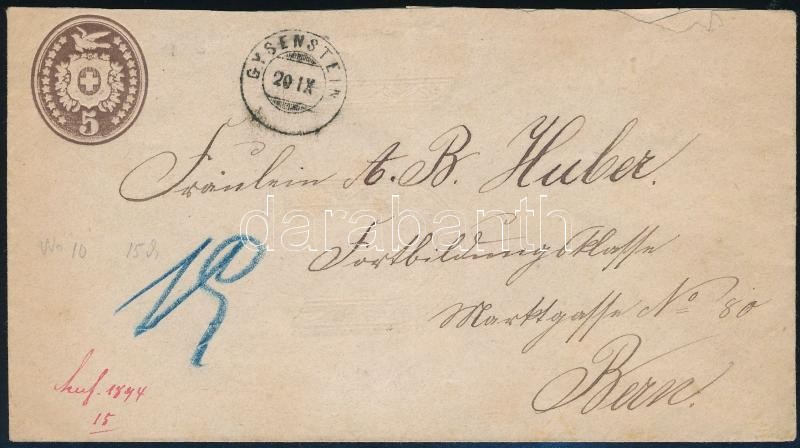 5
GYSENSTEIN
20 IX
Fräulein A. B. Huber.
darabanth
Fortbildungsklasse
Marktgasse No 80
Bern.
No 10
1894
15